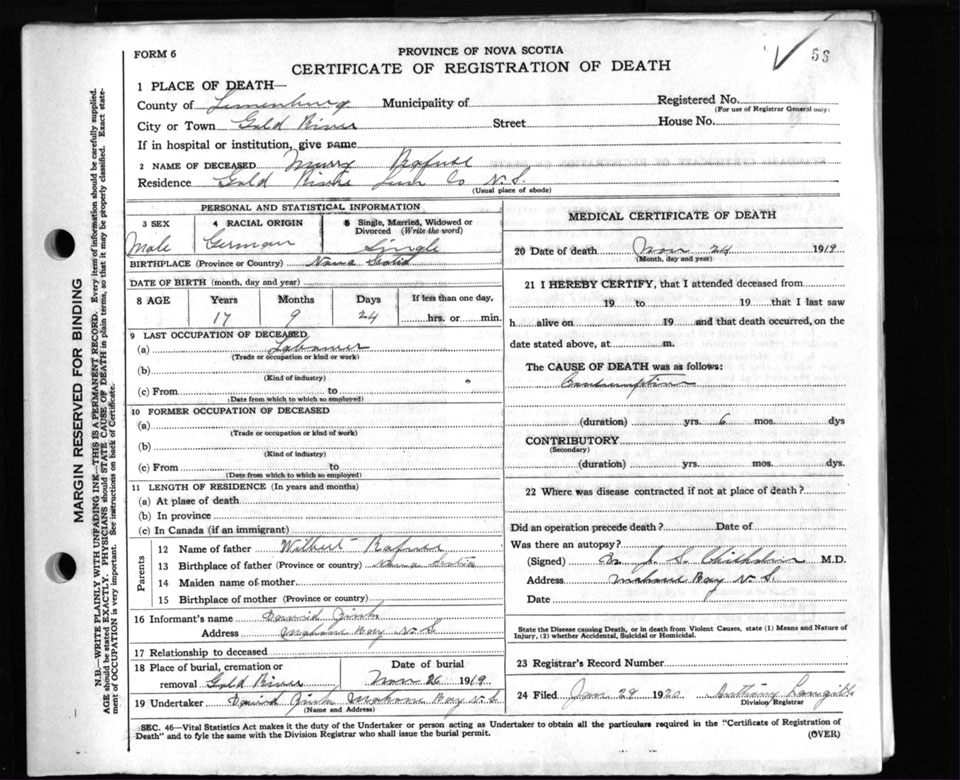 FORM 6
PROVINCE OF NOVA SCOTIA
CERTIFICATE OF REGISTRATION OF DEATH
53
1 PLACE OF DEATH—
County of Lunenburg Municipality of Registered No.
(For use of Registrar General only)
City or Town Gold River Street House No.
If in hospital or institution, give name
2 NAME OF DECEASED Murry Rafuse
Residence Gold River Lun Co N.S.
(Usual place of abode)
PERSONAL AND STATISTICAL INFORMATION
3 SEX 4 RACIAL ORIGIN 5 Single, Married, Widowed or Divorced (Write the word)
Male German Single
BIRTHPLACE (Province or Country) Nova Scotia
DATE OF BIRTH (month, day and year)
8 AGE Years Months Days If less than one day,
17 9 24 hrs. or min.
9 LAST OCCUPATION OF DECEASED
(a) Labourer
(Trade or occupation or kind or work)
(b)
(Kind of industry)
(c) From to
(Date from which to which so employed)
10 FORMER OCCUPATION OF DECEASED
(a)
(Trade or occupation or kind or work)
(b)
(Kind of industry)
(c) From to
(Date from which to which so employed)
11 LENGTH OF RESIDENCE (In years and months)
(a) At place of death
(b) In province
(c) In Canada (if an immigrant)
Parents
12 Name of father Wilbert Rafuse
13 Birthplace of father (Province or country) Nova Scotia
14 Maiden name of mother
15 Birthplace of mother (Province or country)
16 Informant's name David Zink
Address Mahone Bay N.S
17 Relationship to deceased
18 Place of burial, cremation or removal Gold River Date of burial Nov 26 1919
19 Undertaker David Zink Mahone Bay N.S
(Name and Address)
MEDICAL CERTIFICATE OF DEATH
20 Date of death Nov 24 1919
(Month, day and year)
21 I HEREBY CERTIFY, that I attended deceased from
19 to 19 that I last saw
h alive on 19 and that death occurred, on the
date stated above, at m.
The CAUSE OF DEATH was as follows:
Consumption
(duration) yrs. 6 mos. dys
CONTRIBUTORY
(Secondary)
(duration) yrs. mos. dys.
22 Where was disease contracted if not at place of death?
Did an operation precede death? Date of
Was there an autopsy?
(Signed) Dr J. S. M.D.
Address Mahone Bay N.S.
Date
State the Disease causing Death, or in death from Violent Causes, state (1) Means and Nature of
Injury, (2) whether Accidental, Suicidal or Homicidal.
23 Registrar's Record Number
24 Filed Jan 29 1920 Anthony Langille
Division Registrar
SEC. 46—Vital Statistics Act makes it the duty of the Undertaker or person acting as Undertaker to obtain all the particulars required in the "Certificate of Registration of
Death" and to fyle the same with the Division Registrar who shall issue the burial permit.
(OVER)
MARGIN RESERVED FOR BINDING
N.B.—WRITE PLAINLY WITH UNFADING INK—THIS IS A PERMANENT RECORD. Every item of information should be carefully supplied.
AGE should be stated EXACTLY. PHYSICIANS should STATE CAUSE OF DEATH in plain terms, so that it may be properly classified. Exact state-
ment of OCCUPATION is very important. See instructions on back of Certificate.